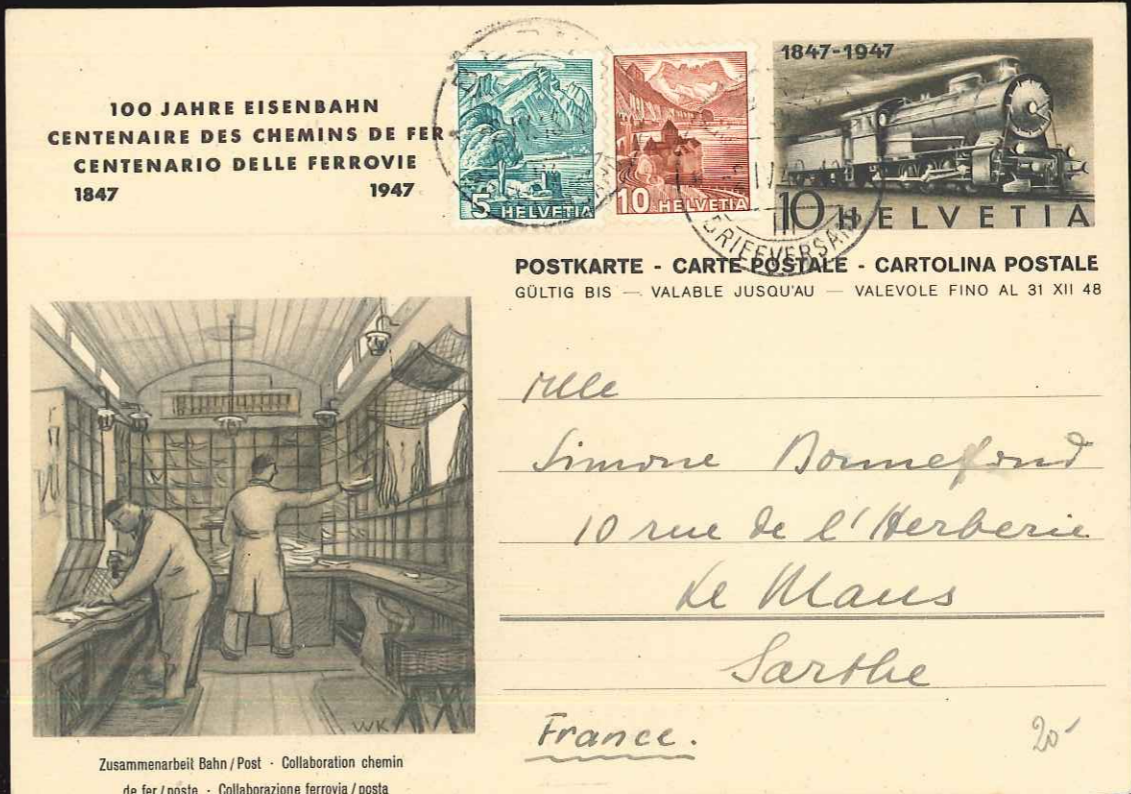 100 JAHRE EISENBAHN
CENTENAIRE DES CHEMINS DE FER
CENTENARIO DELLE FERROVIE
1847 1947
5 HELVETIA
10 HELVETIA
1847-1947
10 HELVETIA
BRIEFVERSAND
POSTKARTE - CARTE POSTALE - CARTOLINA POSTALE
GÜLTIG BIS — VALABLE JUSQU'AU — VALEVOLE FINO AL 31 XII 48
Mlle
Simone Bonnefond
10 rue de l'Herberie
Le Mans
Sarthe
France.
20-
WK
Zusammenarbeit Bahn/Post · Collaboration chemin
de fer/poste · Collaborazione ferrovia/posta